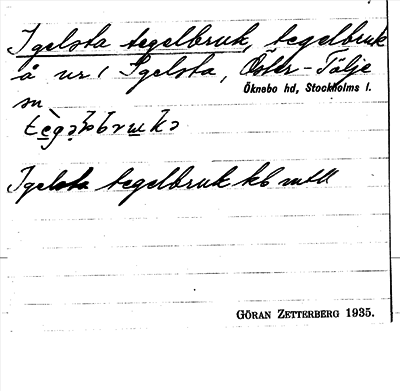 Igelsta tegelbruk, tegelbruk
å nr 1 Igelsta, Öster-Tälje
Öknebo hd, Stockholms l.
sn
Igelsta tegelbruk kb mtll
GÖRAN ZETTERBERG 1935.